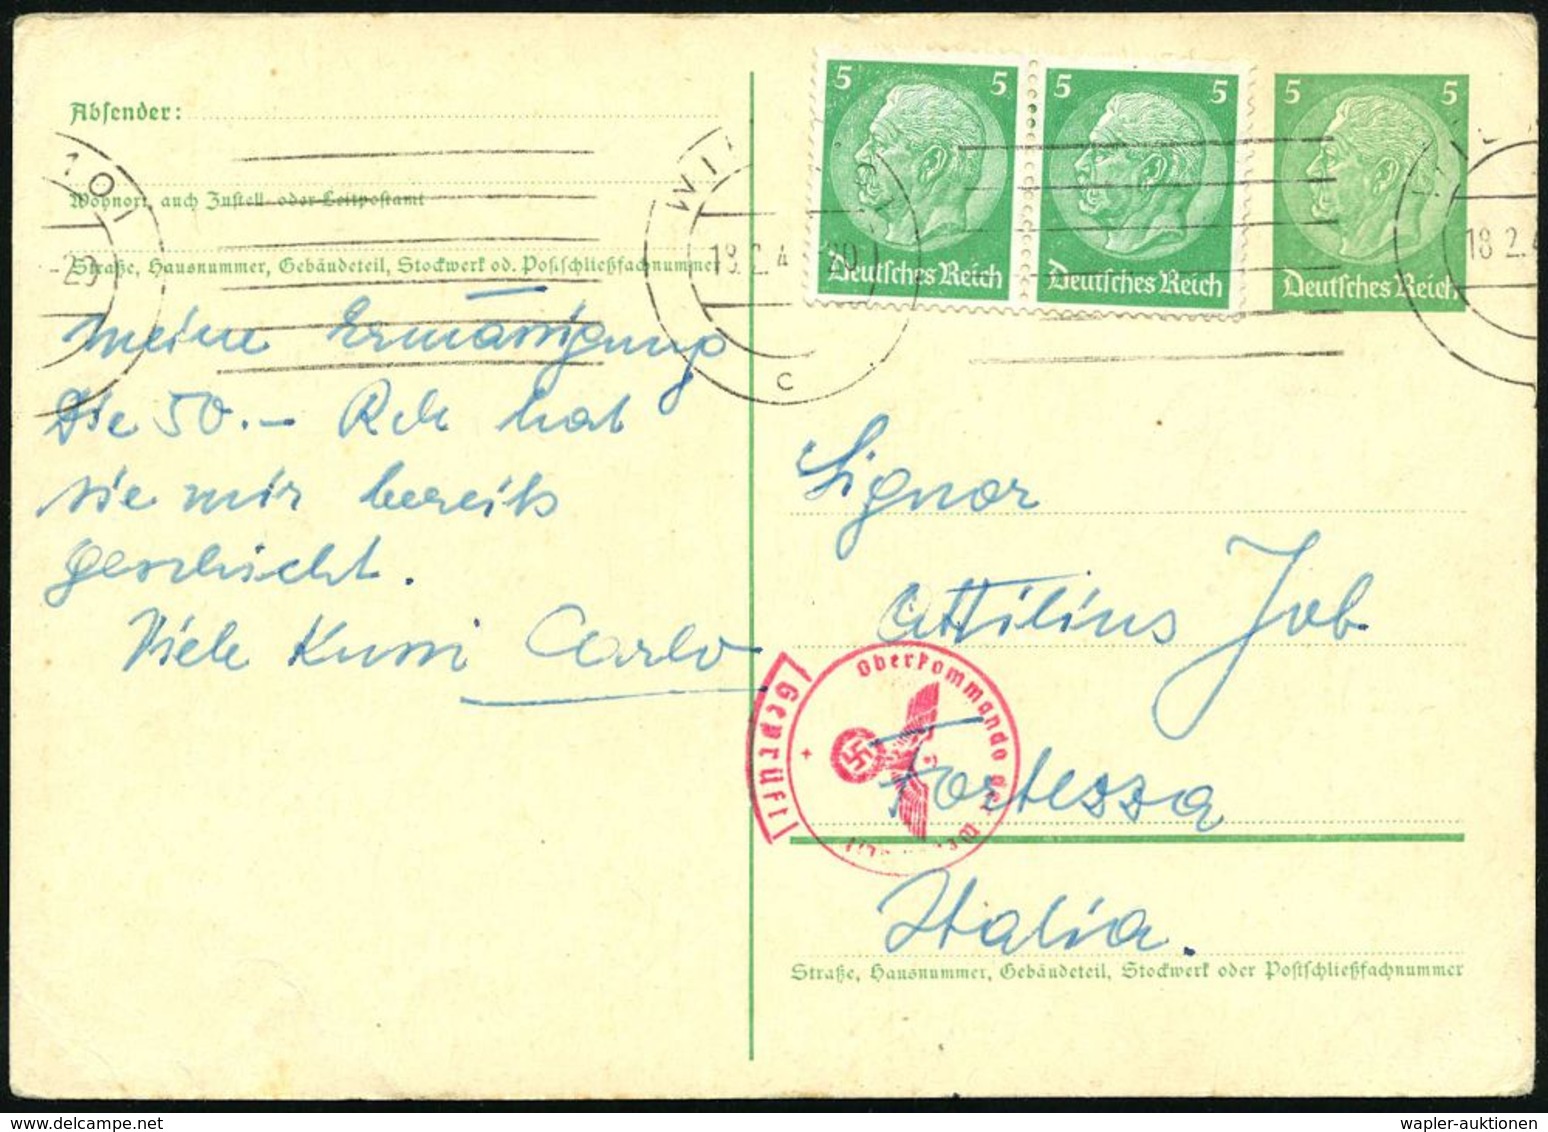 Absender:
Wohnort, auch Zustell- oder Leitpostamt
Straße, Hausnummer, Gebäudeteil, Stockwerk od. Postschließfachnummer
meine Ermässigung
Die 50.– Rch hat
sie mir bereits
geschickt.
Viele Kussi Carlo
5 5
Deutsches Reich
5 5
Deutsches Reich
5 5
Deutsches Reich
18.2.4 -20
C
18.2.4
-20
Signor
Attilius Job
Fortezza
Italia.
Geprüft
Oberkommando der
Straße, Hausnummer, Gebäudeteil, Stockwerk oder Postschließfachnummer
wapler-auktionen